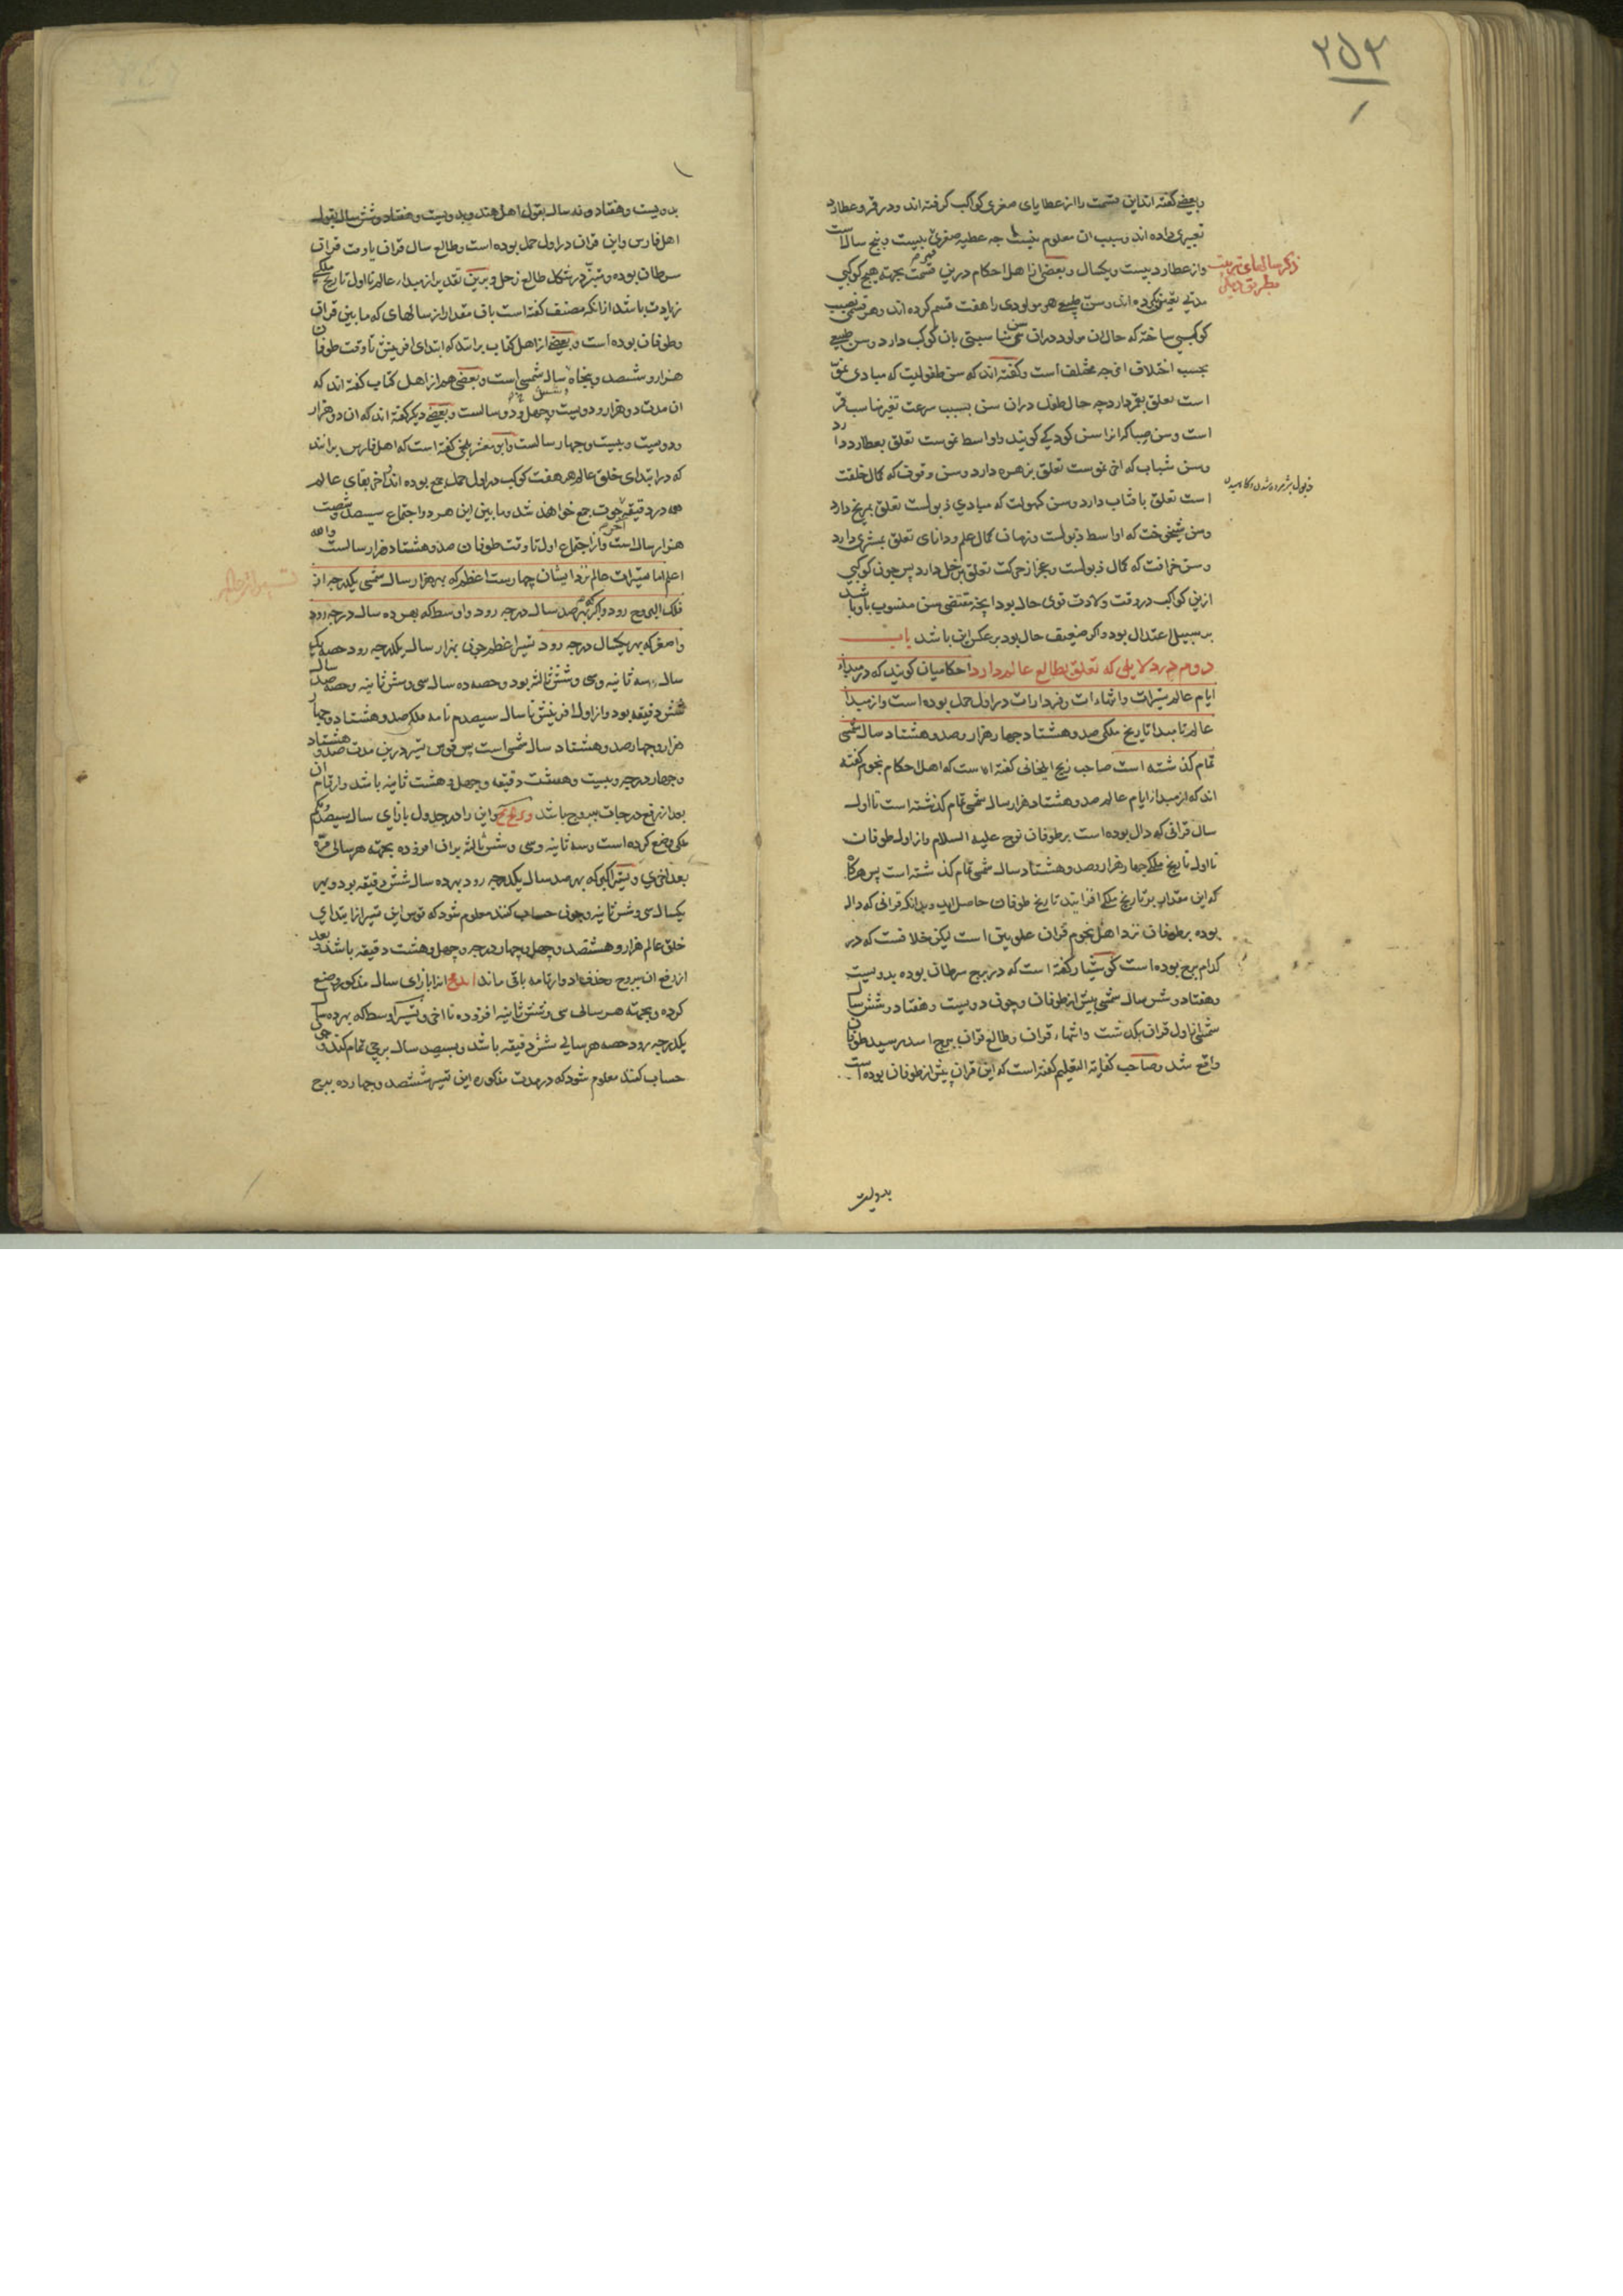 ۲۵۳
وبعضی گفته اند این قسمت را از عطایای صغری کواکب گرفته اند ودر قمر وعطارد
تغییری داده اند وسبب ان معلوم نیست چه عطیه صغری بیست وپنج سال است
واز عطارد بیست ویکسال وبعضی از اهل احکام درین قسمت بجهت هیچ کوکبی
ذکر سالهای تربیت بطریق دیگر
مدتی تعیین نکرده اند وسن طبیعی هر مولودی را هفت قسم کرده اند وهر قسمی نصیب
کوکبی ساخته که حال ان مولود دران سن مناسبتی بان کوکب دارد وسن طبیعی
بحسب اختلاف امزجه مختلف است وگفته اند که سن طفولیت که مبادی نموّ
است تعلق بقمر دارد چه حال طفل دران سن بسبب سرعت تغیر مناسب قمر
است وسن صبا که انرا سن کودکی گویند واواسط نموست تعلق بعطارد دارد
وسن شباب که اخر نموست تعلق بزهره دارد وسن وقوف که کمال خلقت
است تعلق بافتاب دارد وسن کهولت که مبادی ذبولست تعلق بمریخ دارد
ذبول پژمرده شدن وکاهیدن
وسن شیخوخت که اواسط ذبولست وزمان کمال علم ودانای تعلق بمشتری دارد
وسن خرافت که کمال ذبولست وعجز از حرکت تعلق بزحل دارد پس چون کوکبی
ازین کواکب در وقت ولادت قوی حال بود انچه مقتضی سن منسوب باو باشد
بر سبیل اعتدال بود واگر ضعیف حال بود بر عکس این باشد باب
دوم در دلایلی که تعلق بطالع عالم دارد احکامیان گویند که در مبداء
ایام عالم تسییرات وانتهاءات وفردارات در اول حمل بوده است واز مبدأ
عالم تا مبدا تاریخ ملکی صد وهشتاد چهار هزار وصد وهشتاد سال شمسی
تمام گذشته است صاحب زیج ایلخانی گفته است که اهل احکام نجوم گفته
اند که از مبدا ایام عالم صد وهشتاد هزار سال شمسی تمام گذشته است تا اول
سال قرانی که دال بوده است بر طوفان نوح علیه السلام واز اول طوفان
تا اول تاریخ ملکی چهار هزار وصد وهشتاد سال شمسی تمام گذشته است پس هرگاه
که این مقدار بر تاریخ ملکی افزایند تاریخ طوفان حاصل اید وبدانکه قرانی که دال
بوده بر طوفان نزد اهل نجوم قران علویین است لیکن خلافست که در
کدام برج بوده است کوشیار گفته است که در برج سرطان بوده بدویست
وهفتاد وشش سال شمسی پیش از طوفان وچون دویست وهفتاد وشش سال
شمسی از اول قران بگذشت وانتهاء قران وطالع قران ببرج اسد رسید طوفان
واقع شد وصاحب کفایة التعلیم گفته است که این قران پیش از طوفان بوده است
بدویست
بدویست وهفتاد ونه سال بقول اهل هند وبدویست وهفتاد وشش سال بقول
اهل فارس واین قران در اول حمل بوده است وطالع سال قران یا وقت قران
سرطان بوده وتیر در شکل طالع زحل وبرین تقدیر از مبداء عالم تا اول تاریخ ملکی
زیادت باشد از انکه مصنف گفته است بان مقدار از سالهای که مابین قران
وطوفان بوده است وبعضی از اهل کتاب برانند که ابتدای افرینش تا وقت طوفان
هزار وششصد وپنجاه وشش سال شمسی است وبعضی هم از اهل کتاب گفته اند که
ان مدت دو هزار ودویست وچهل ودو سالست وبعضی دیگر گفته اند که ان دو هزار
ودویست وبیست وچهار سالست وابو معشر بلخی گفته است که اهل فارس برانند
که در ابتدای خلق عالم هر هفت کوکب در اول حمل جمع بوده اند واخر بقای عالم
همه در دقیقه اخر حوت جمع خواهند شد ومابین این هر دو اجتماع سیصد وشصت
هزار سال است واز اجتماع اول تا وقت طوفان صد وهشتاد هزار سالست والله
اعلم اما تسییرات عالم نزد ایشان چهارست اعظم که بهر هزار سال شمسی یکدرجه از
فلک البروج رود واکبر که بهر صد سال درجه رود واوسط که بهر ده سال درجه رود
واصغر که بهر یکسال درجه رود تسییر اعظم چون بهزار سال یکدرجه رود حصه یک
سال سه ثانیه وسی وشش ثالثه بود وحصه ده سال سی وشش ثانیه وحصه صد سال
شش دقیقه بود واز اول افرینش تا سال سیصدم نامه ملکی صد وهشتاد وچهار
هزار وچهارصد وهشتاد سال شمسی است پس قوس تسییر درین مدت صد وهشتاد
وچهار درجه وبیست وهشت دقیقه وچهل وهشت ثانیه باشد وارقام ان
بعد از رفع درجات ببروج باشد و د کح مح واین را در جدول بازای سال سیصدم
ملکی وضع کرده است وسه ثانیه وسی وشش ثالثه بران افزوده بجهت هر سالی مرّة
بعد اخری وتسییر اکبر که بهر صد سال یکدرجه رود بهر ده سال شش دقیقه بود وبهر
یکسال سی وشش ثانیه وچون حساب کنند معلوم شود که قوس این تسییر از ابتدای
خلق عالم هزار وهشتصد وچهل وچهار درجه وچهل وهشت دقیقه باشد وبعد
از رفع ان ببروج وحذف ادوار تامه باقی ماند انرا بازای سال مذکور وضع
کرده وبجهت هر سالی سی وشش ثانیه افزوده تا اخر وتسییر اوسط که بهر ده سال
یکدرجه رود حصه هر سالی شش دقیقه باشد وبسیصد سال برجی تمام کند وچون
حساب کنند معلوم شود که در مدت مذکوره این تسییر ششصد وچهارده برج